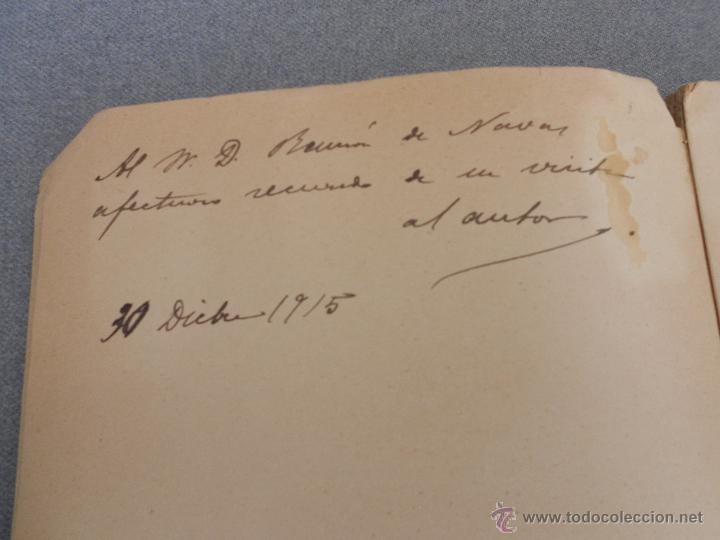 Al Sr. D. Ramón de Navas
afectuoso recuerdo de su visita
al autor
30 Dicbre 1915
www.todocoleccion.net